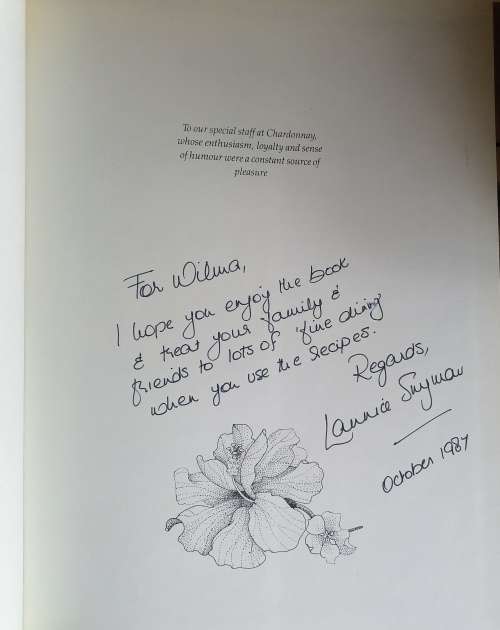 To our special staff at Chardonnay,
whose enthusiasm, loyalty and sense
of humour were a constant source of
pleasure
For Wilma,
I hope you enjoy the book
& treat your family &
friends to lots of 'fine dining'
when you use the recipes.
Regards,
Lannice Snyman
October 1987